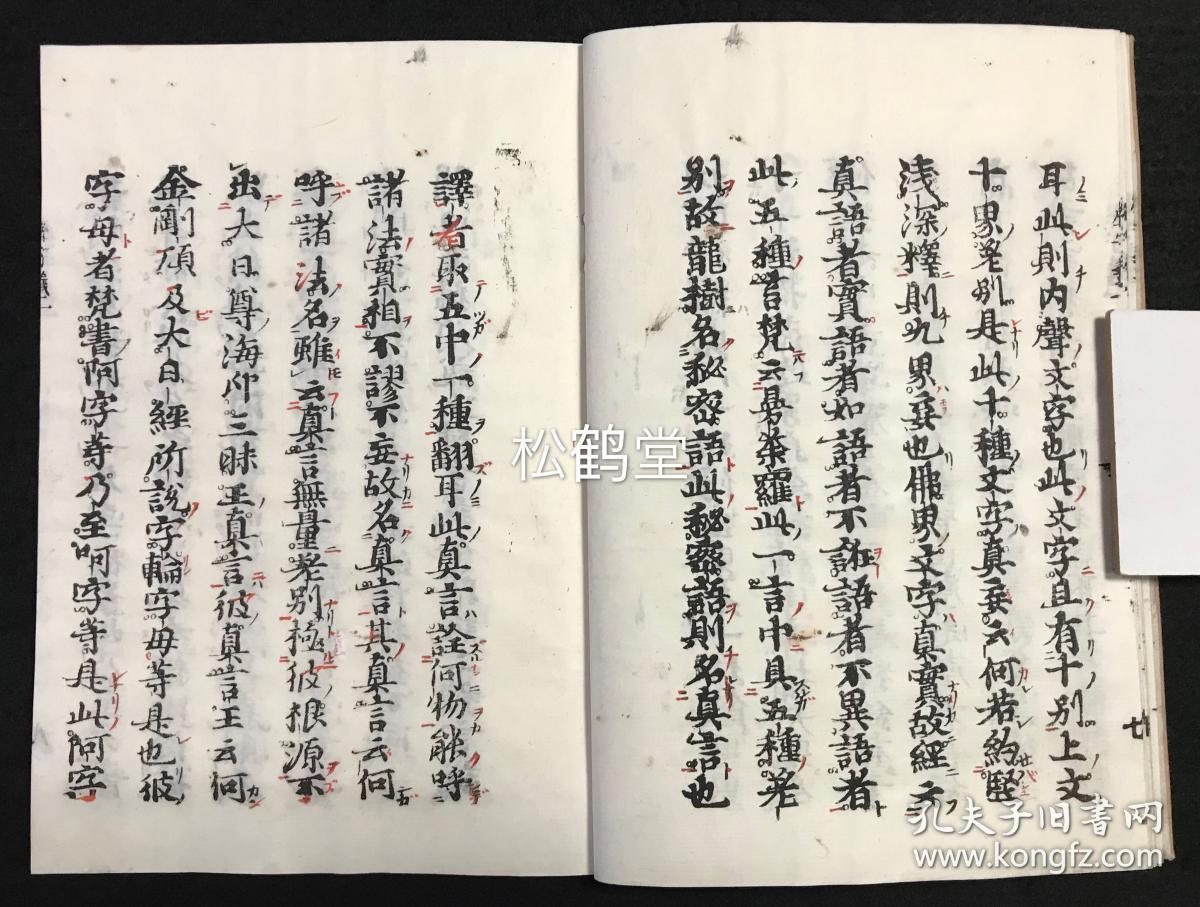 耳此則内聲文字也此文字且有十別上文
十界差別是此十種文字真妄云何若約竪
浅深釋則九界妄也佛界文字真實故經云
真語者實語者如語者不誑語者不異語者
此五種言梵云曼荼羅此一言中具五種差
別故龍樹名秘密語此秘密語則名真言也
譯者取五中一種翻耳此真言詮何物能呼
諸法實相不謬不妄故名真言其真言云何
呼諸法名雖云真言無量差別極彼根源不
出大日尊海印三昧王真言彼真言王云何
金剛頂及大日經所說字輪字母等是也彼
字母者梵書阿字等乃至呵字等是此阿字
松鹤堂
孔夫子旧书网
www.kongfz.com